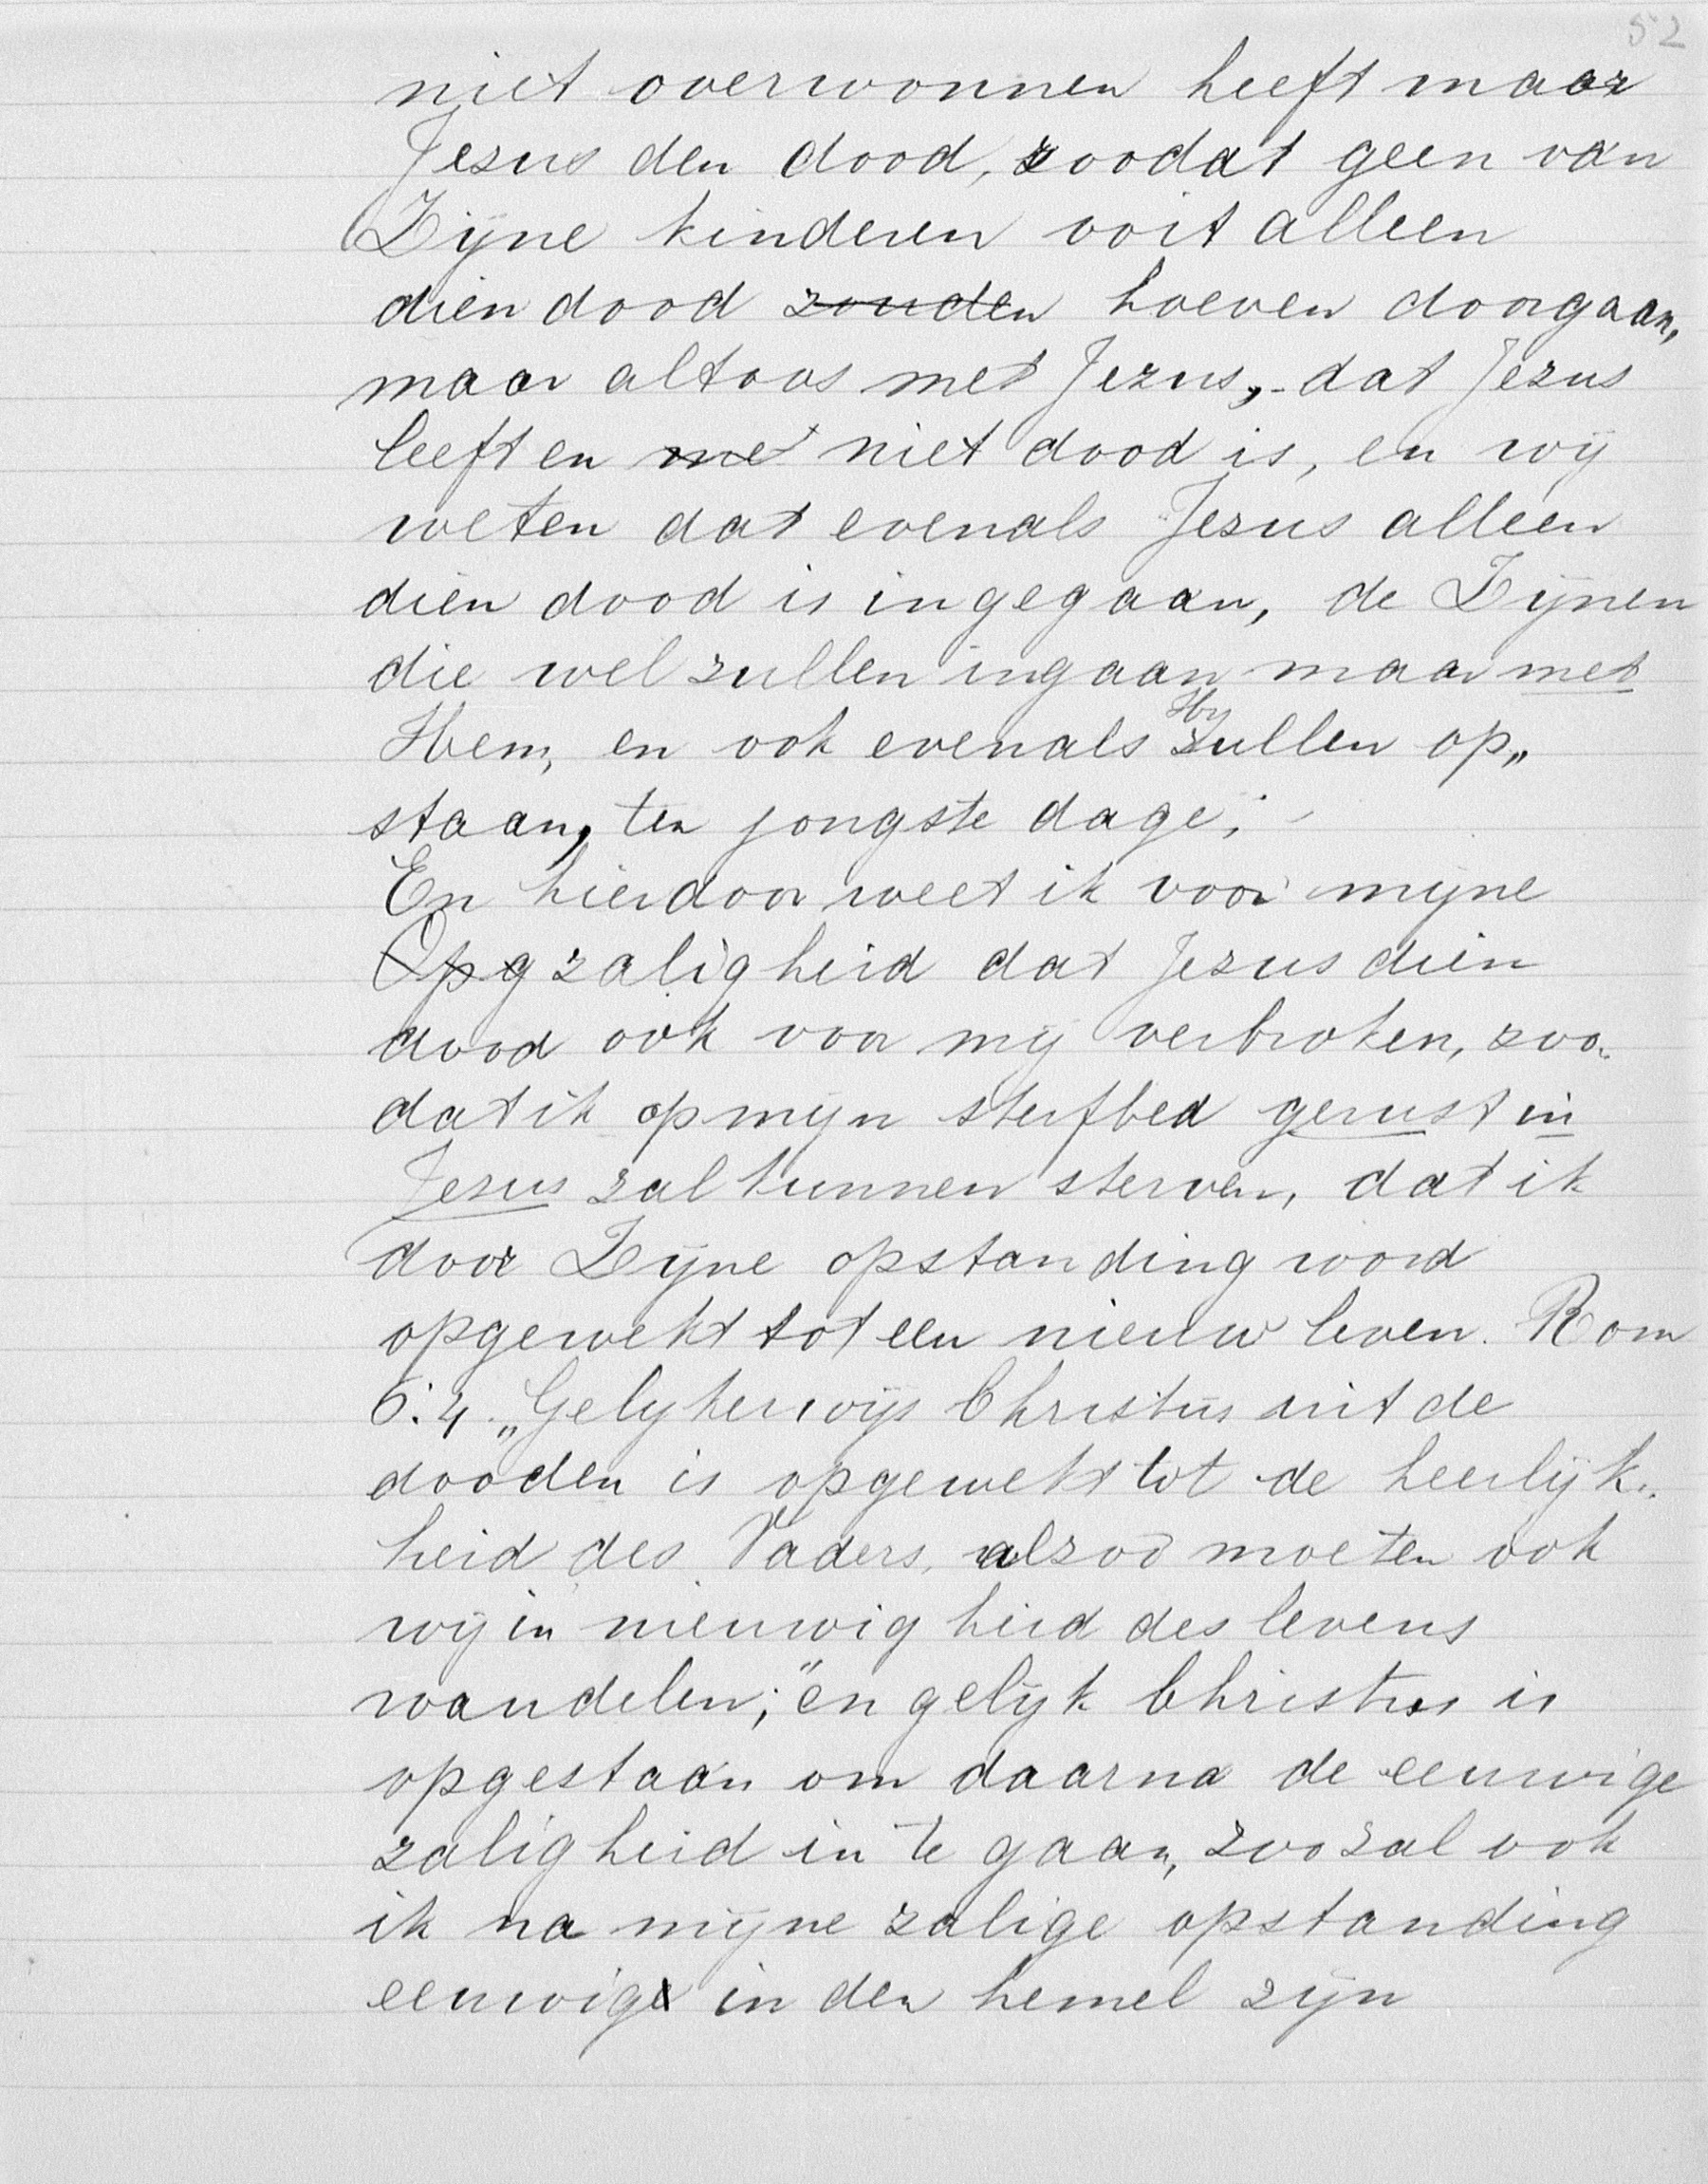 52
niet overwonnen heeft maar
Jezus den dood, zoodat geen van
Zijne kinderen ooit alleen
dien dood zouden hoeven doorgaan,
maar altoos met Jezus, - dat Jezus
leeft en met niet dood is, en wij
weten dat evenals Jezus alleen
dien dood is ingegaan, de Zijnen
die wel zullen ingaan maar met
Hem, en ook evenals Hij zullen op„
staan, ten jongste dage; -
En hierdoor weet ik voor mijne
Opg zaligheid dat Jezus dien
dood ook voor mij verbroken, zoo„
dat ik op mijn sterfbed gerust in
Jezus zal kunnen sterven, dat ik
door Zijne opstanding word
opgewekt tot een nieuw leven. Rom
6:4. „Gelijkerwijs Christus uit de
dooden is opgewekt tot de heerlijk„
heid des Vaders, alzoo moeten ook
wij in nieuwigheid des levens
wandelen;" en gelijk Christus is
opgestaan om daarna de eeuwige
zaligheid in te gaan, zoo zal ook
ik na mijne zalige opstanding
eeuwige in den hemel zijn